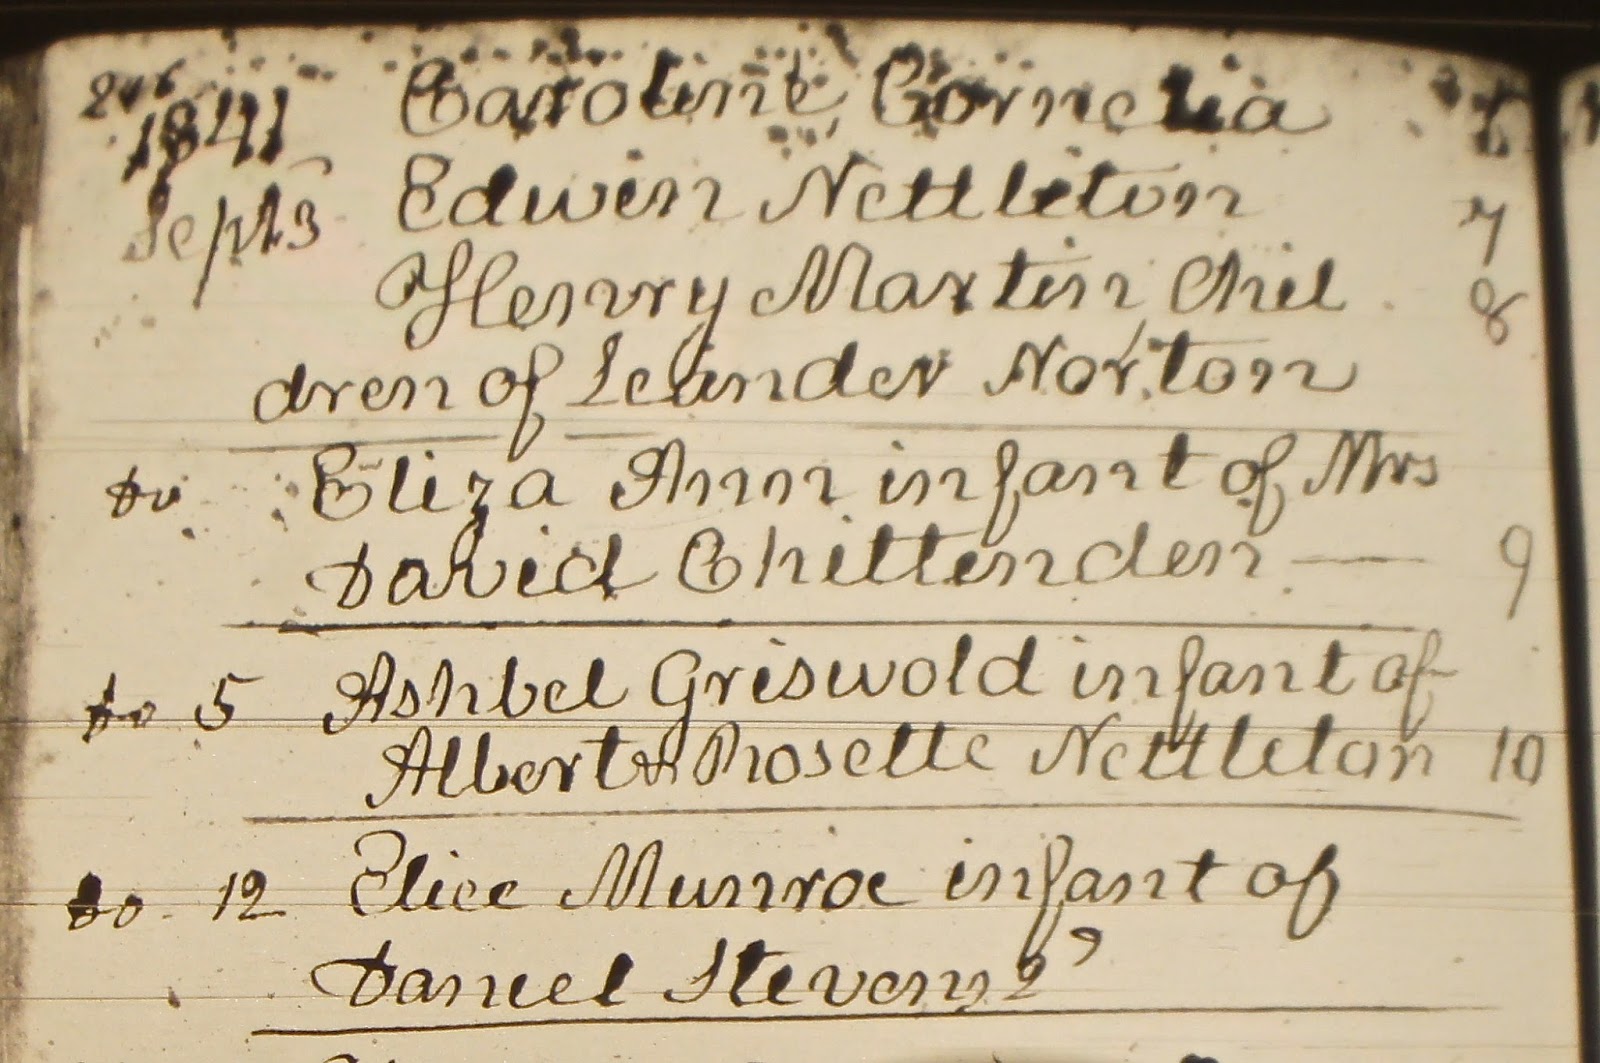 246
1841 Caroline Cornelia
Sept 3 Edwin Nettleton 7
Henry Martin Chil 8
dren of Leander Norton
do Eliza Ann infant of Mrs
David Chittenden — 9
do 5 Ashbel Griswold infant of
Albert & Rosette Nettleton 10
do 12 Elice Munroe infant of
Daniel Stevens 2'